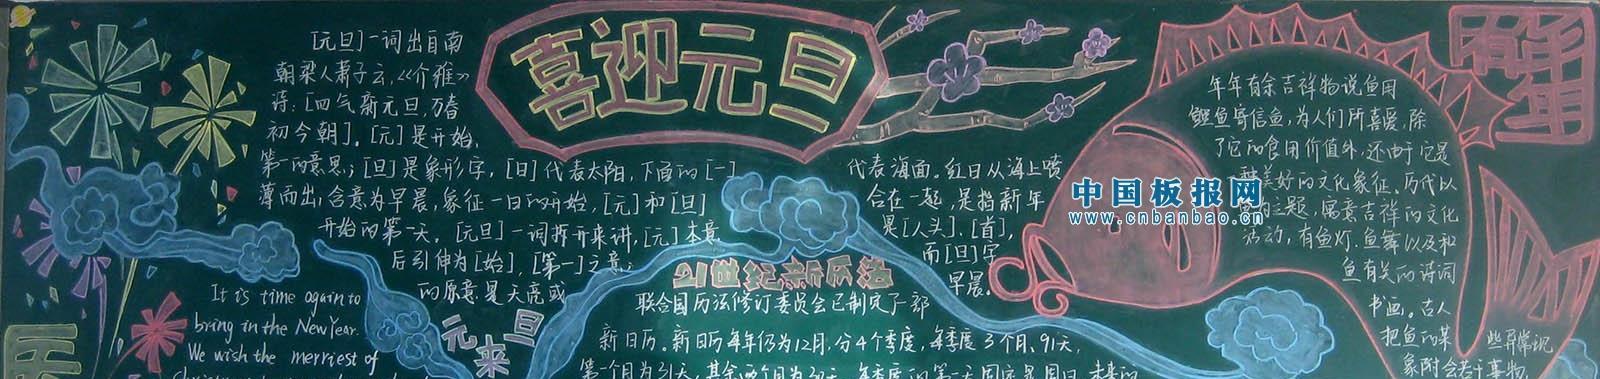 喜迎元旦
[元旦]一词出自南
朝梁人萧子云,《介雅》
诗:[四气新元旦,万春
初今朝]。[元]是开始,
第一的意思;[旦]是象形字,[日]代表太阳,下面的[一]
代表海面。红日从海上喷
薄而出,含意为早晨,象征一日的开始,[元]和[旦]
合在一起,是指新年
开始的第一天。[元旦]一词拆开来讲,[元]本意
是[人头]、[首],
后引伸为[始],[第一]之意;
而[旦]字
的原意是天亮或
早晨。
It is time again to
bring in the New Year.
We wish the merriest of
元旦来
21世纪新历法
联合国历法修订委员会已制定了部
新日历。新日历每年仍为12月,分4个季度,每季度3个月、91天,
第一个月为31天,其余两个月为30天
有年
年年有余吉祥物说鱼用
鲤鱼寄信鱼,为人们所喜爱,除
了它的食用价值外,还由于它是
美好的文化象征。历代以
主题,寓意吉祥的文化
活动,有鱼灯、鱼舞以及和
鱼有关的诗词
书画。古人
把鱼的某
些异常现
象附会若干事物
中国板报网
www.cnbanbao.cn